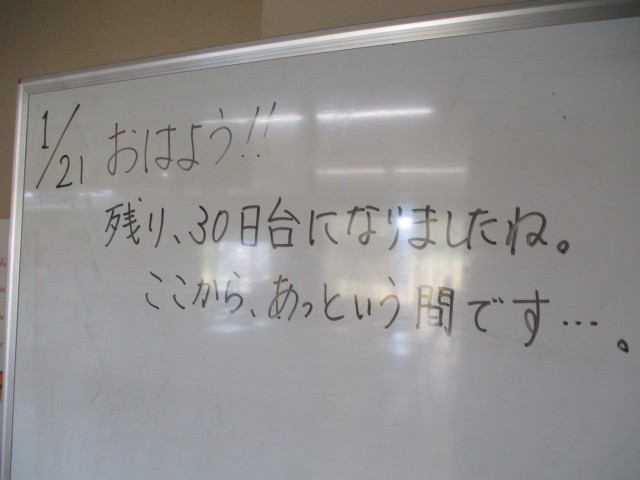 1/21 おはよう!!
残り、30日台になりましたね。
ここから、あっという間です…。